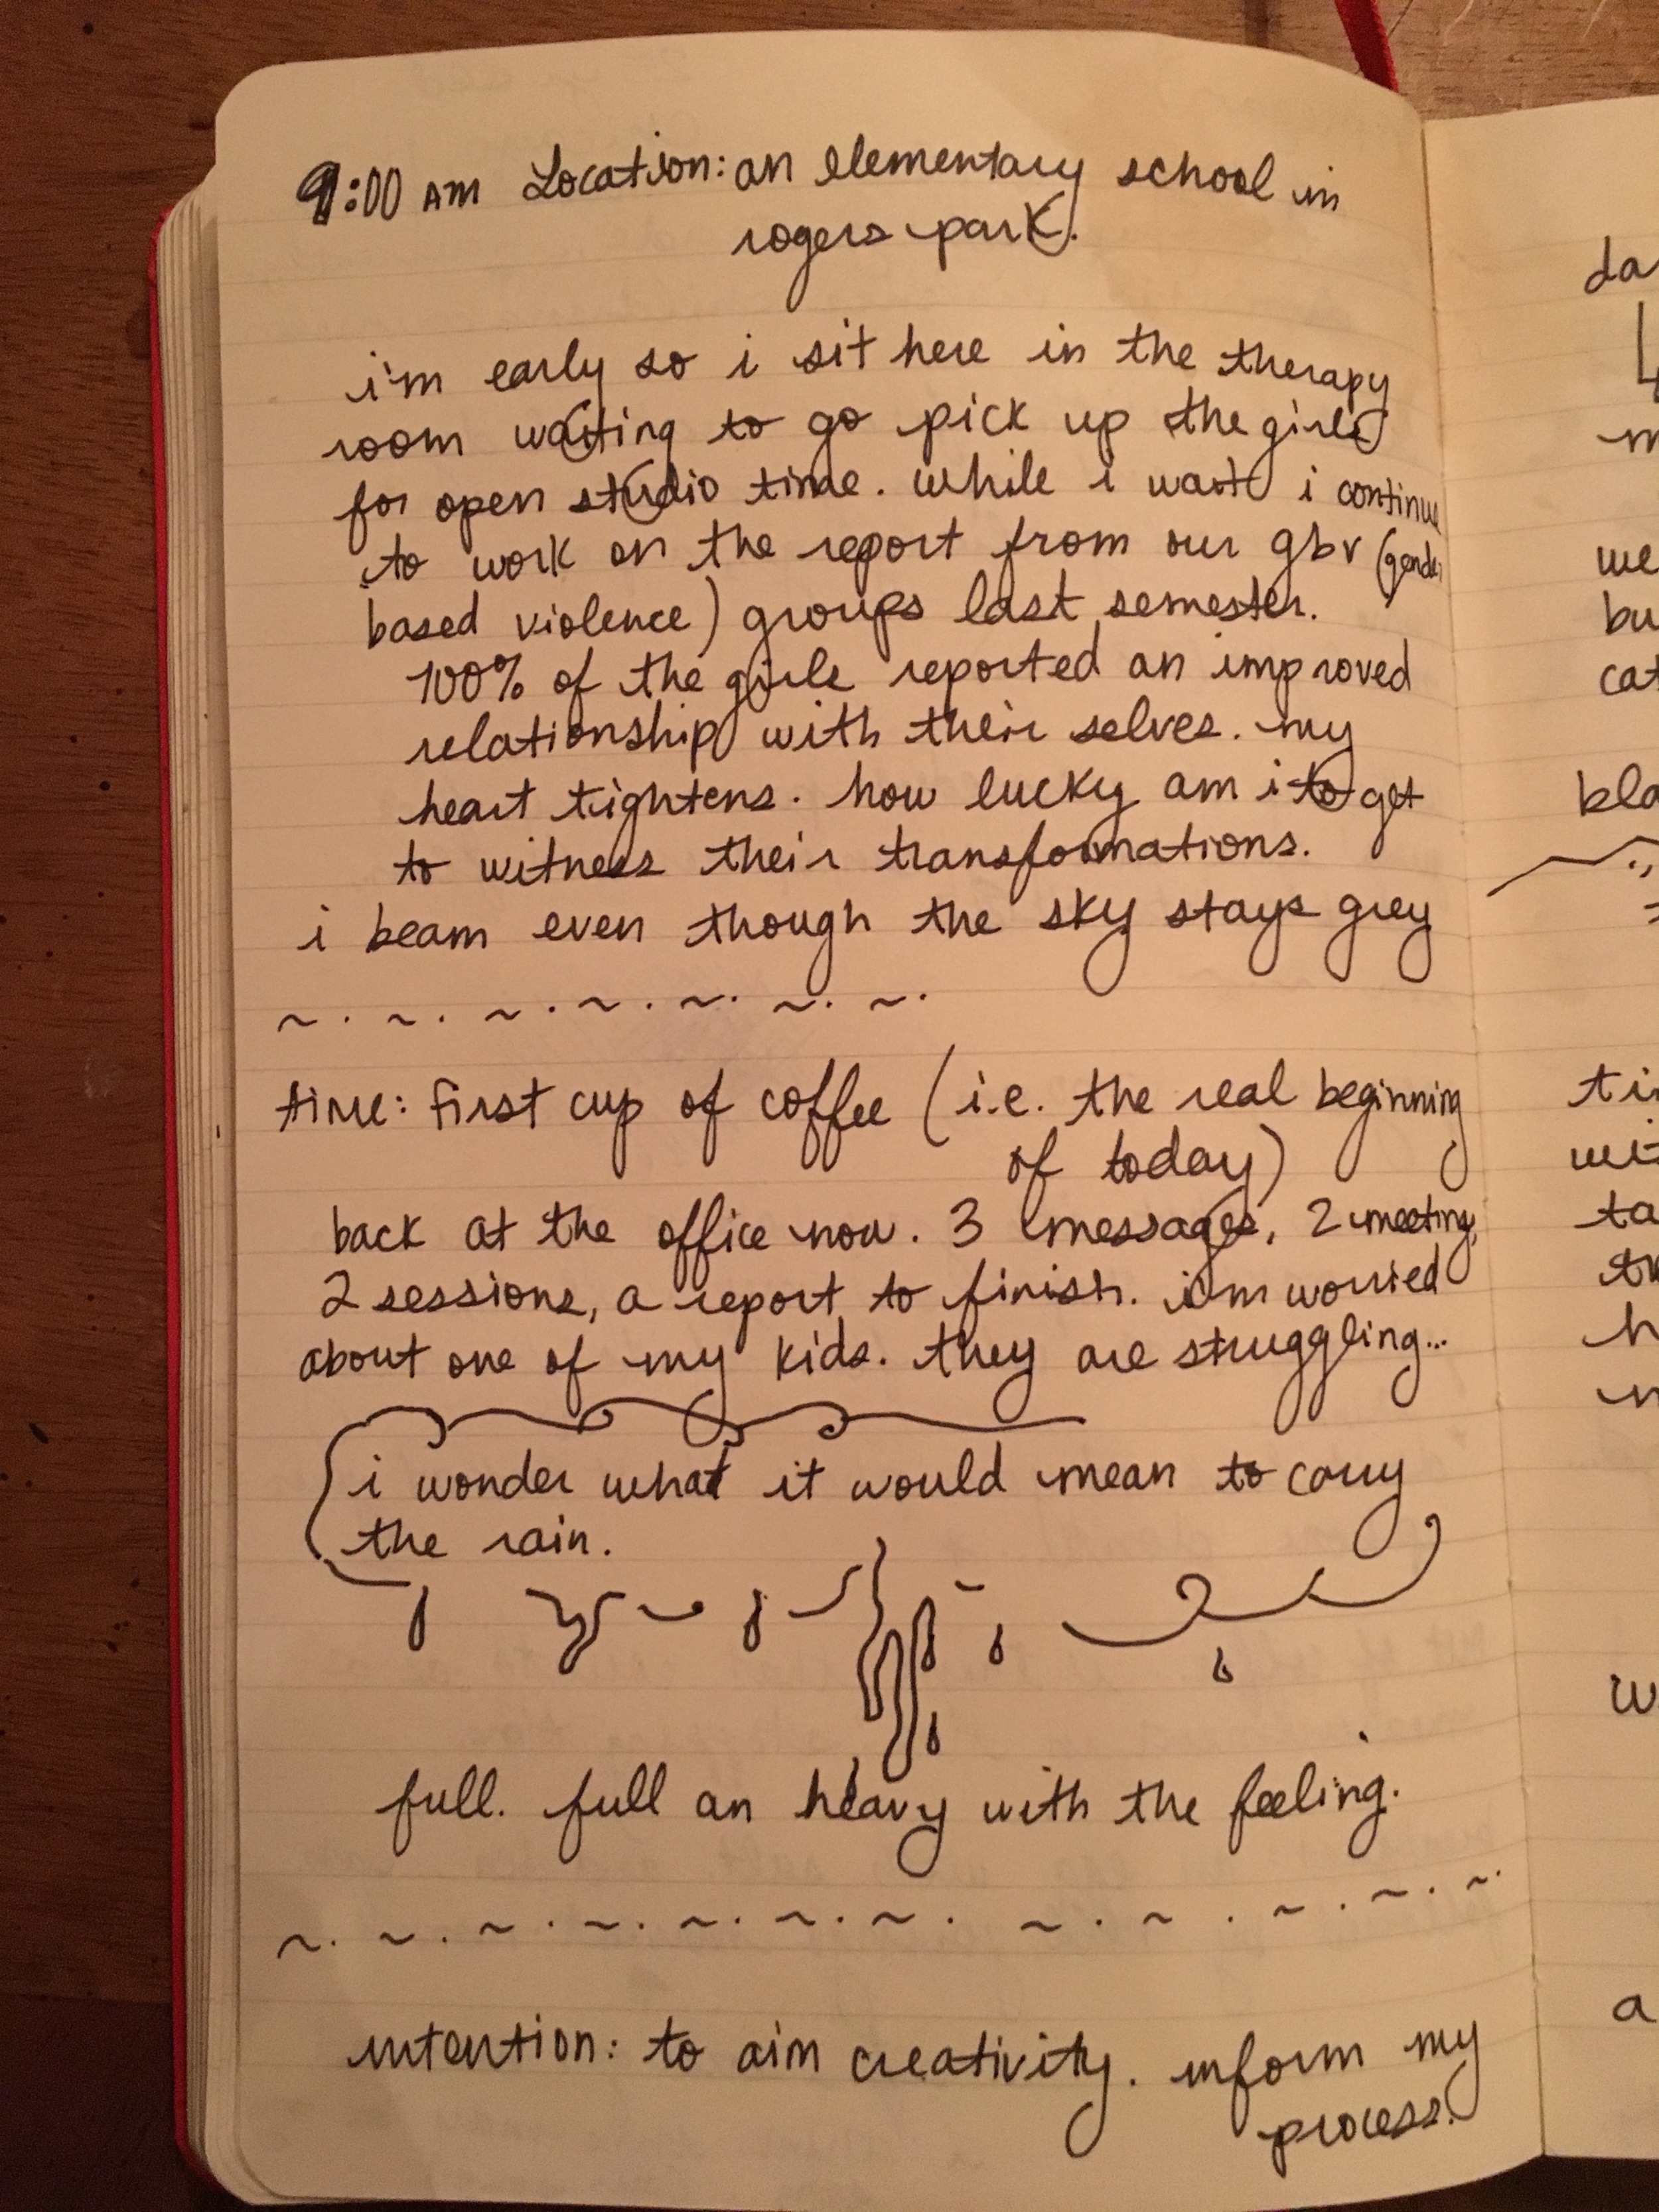 9:00 AM Location: an elementary school in
rogers park.
i'm early so i sit here in the therapy
room waiting to go pick up the girls
for open studio time. while i wait i continue
to work on the report from our gbv (gender
based violence) groups last semester.
100% of the girls reported an improved
relationship with their selves. my
heart tightens. how lucky am i to get
to witness their transformations.
i beam even though the sky stays grey
time: first cup of coffee (i.e. the real beginning
of today)
back at the office now. 3 messages, 2 meetings,
2 sessions, a report to finish. i'm worried
about one of my kids. they are struggling...
i wonder what it would mean to carry
the rain.
full. full an heavy with the feeling.
intention: to aim creativity. inform my
process.
da
m
we
bu
cat
bla
ti
wit
ta
h
w
a